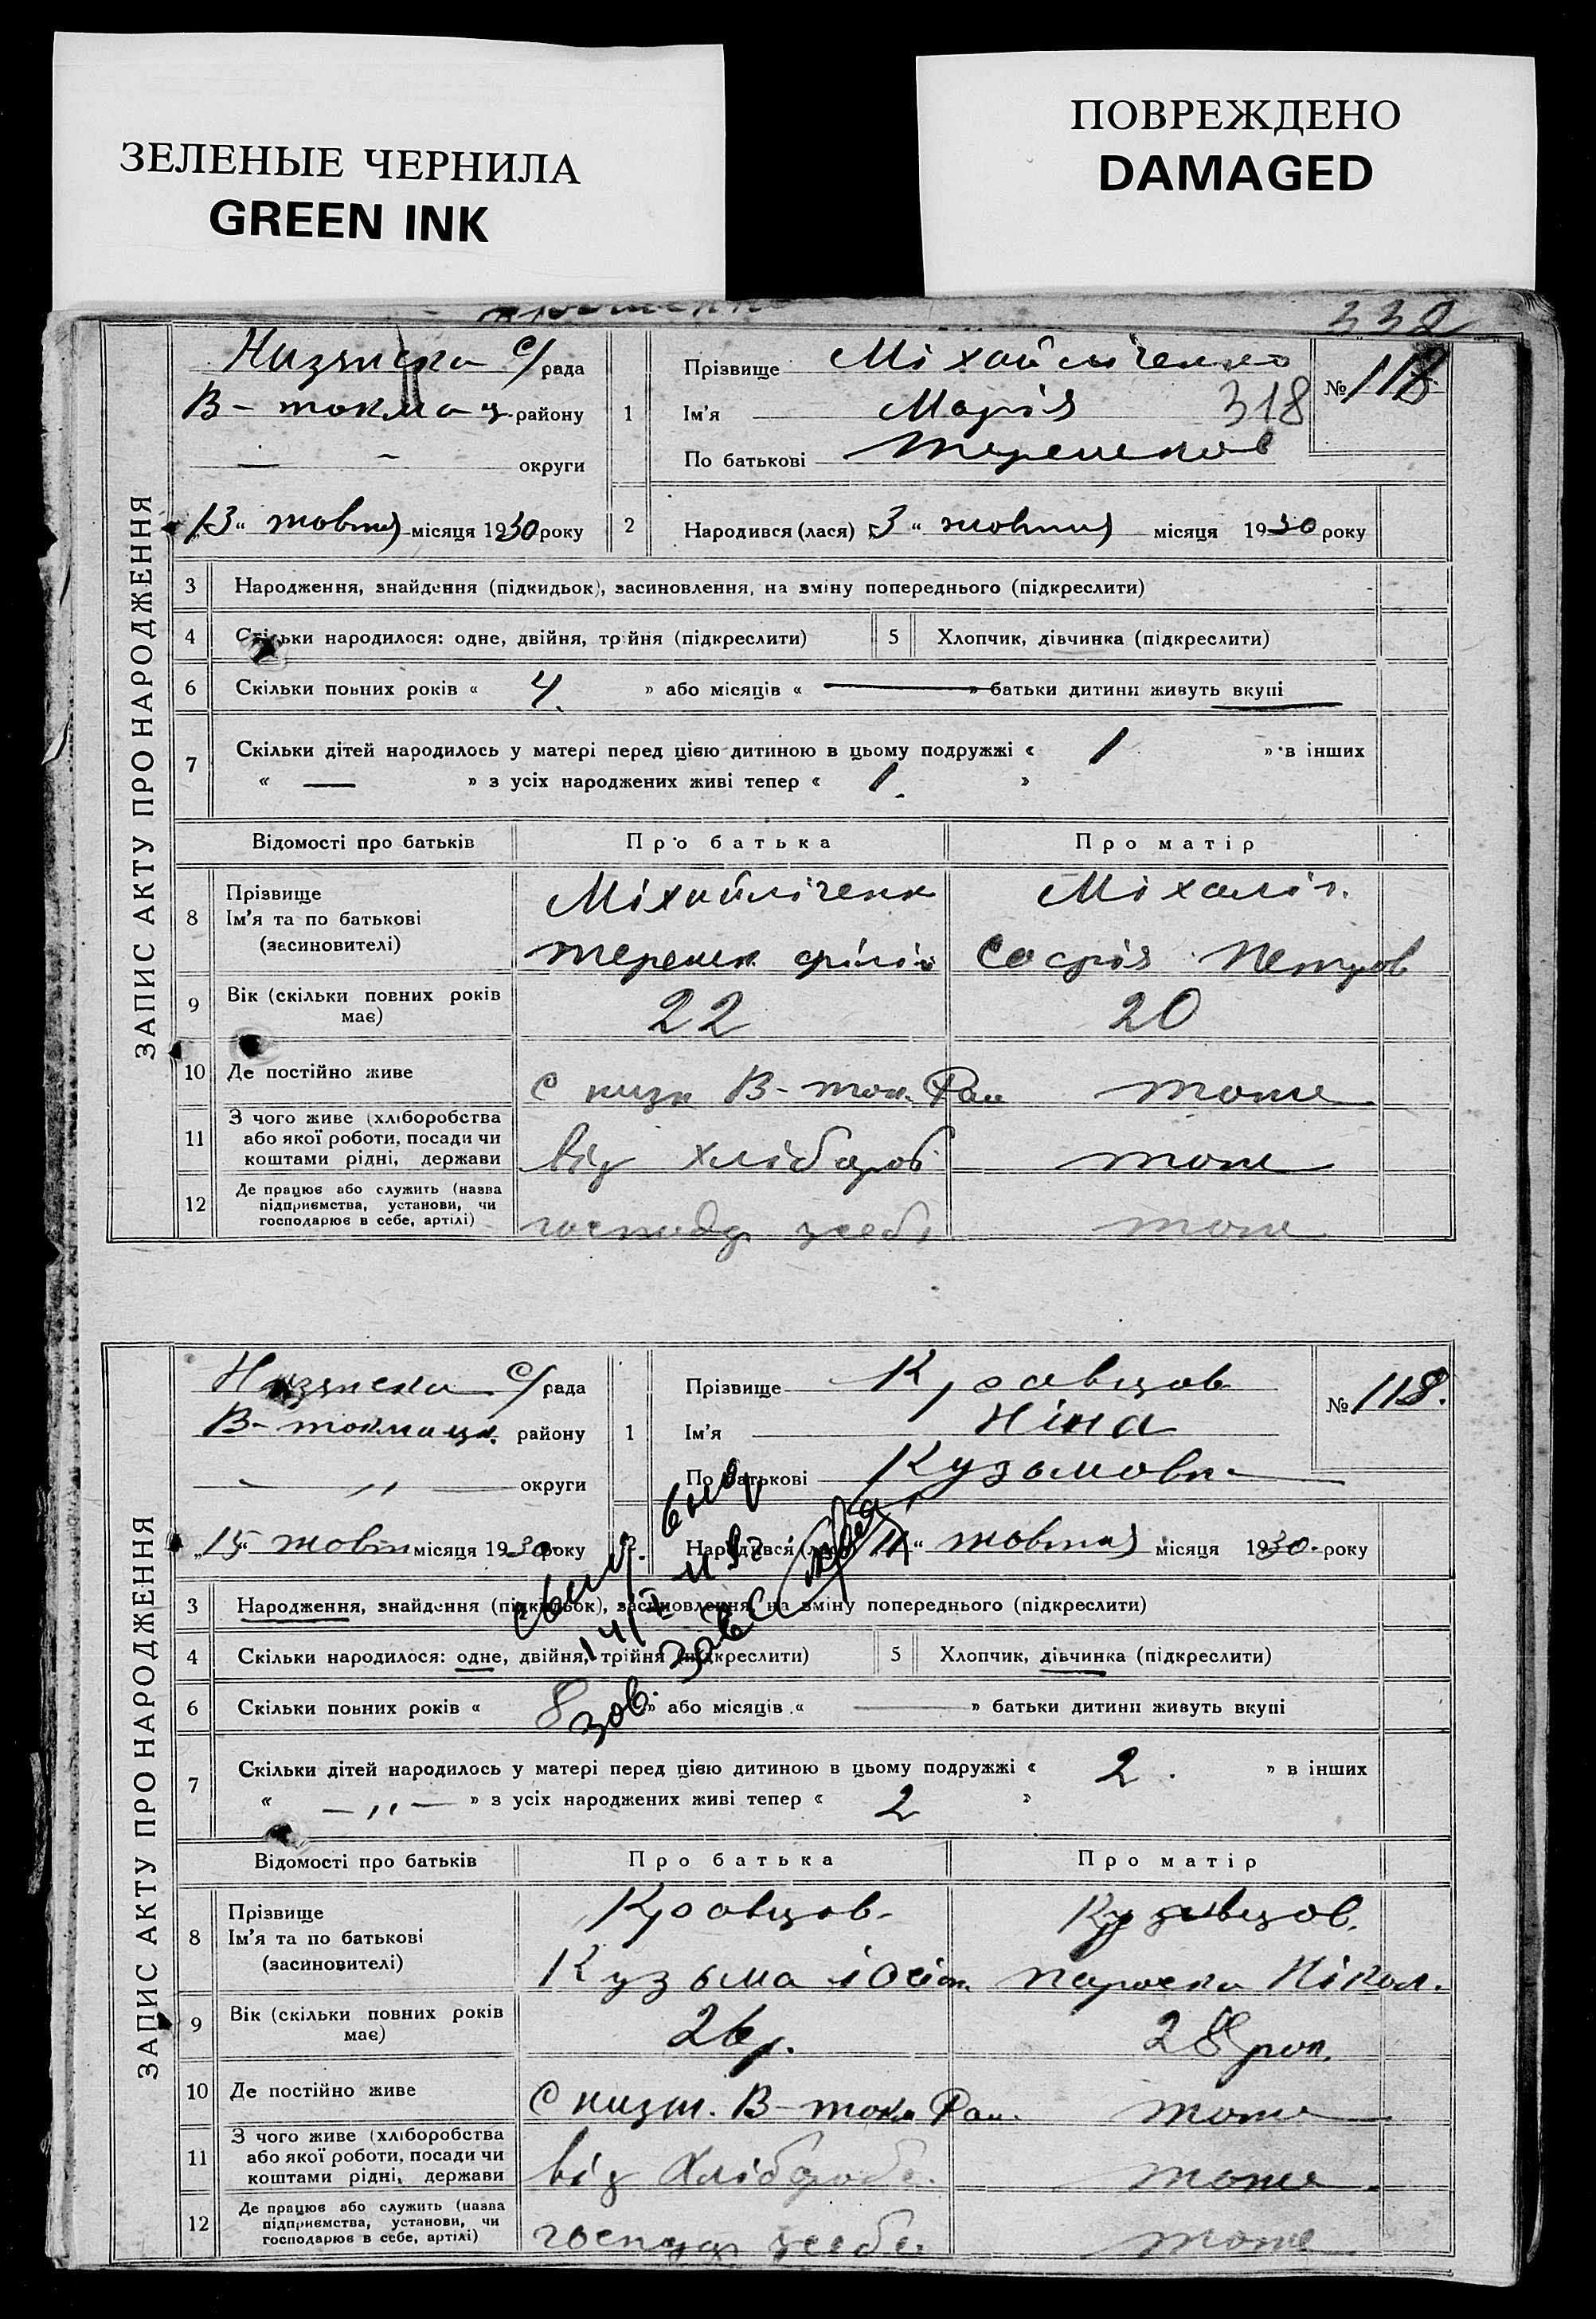 ЗЕЛЕНЫЕ ЧЕРНИЛА
GREEN INK
ПОВРЕЖДЕНО
DAMAGED
332
ЗАПИС АКТУ ПРО НАРОДЖЕННЯ
Низянска с/рада
В-токмац. району
— - округи
„13“ жовтня місяця 1930 року
1
Прізвище Міхайліченко
Ім'я Марія 318
По батькові Терешков
№ 117
2 Народився (лася) „3“ жовтня місяця 1930 року
3 Народження, знайдення (підкидьок), засиновлення, на зміну попереднього (підкреслити)
4 Скільки народилося: одне, двійня, трійня (підкреслити)
5 Хлопчик, дівчинка (підкреслити)
6 Скільки повних років « 4. » або місяців « — » батьки дитини живуть вкупі
7 Скільки дітей народилось у матері перед цією дитиною в цьому подружжі « 1 » в інших
« — » з усіх народжених живі тепер « 1. »
Відомості про батьків Про батька Про матір
8 Прізвище
Ім'я та по батькові
(засиновителі)
Міхайліченк
Терешк філіп
Міхаліч.
Софія Петров
9 Вік (скільки повних років має) 22 20
10 Де постійно живе С низя В-ток. Рай тоже
11 З чого живе (хліборобства або якої роботи, посади чи коштами рідні, держави від хлібороб тоже
12 Де працює або служить (назва підприємства, установи, чи господарює в себе, артілі) господар у себе тоже
ЗАПИС АКТУ ПРО НАРОДЖЕННЯ
Низянска с/рада
В-токмацк. району
— „ — округи
„15“ жовтн місяця 1930 року
1
Прізвище Кравцов
Ім'я Ніна
По батькові Кузьмовн
№ 118.
2 Народився (лася) „11“ жовтня місяця 1930. року
3 Народження, знайдення (підкидьок), засиновлення, на зміну попереднього (підкреслити)
4 Скільки народилося: одне, двійня, трійня (підкреслити)
5 Хлопчик, дівчинка (підкреслити)
6 Скільки повних років « 8 » або місяців « — » батьки дитини живуть вкупі
7 Скільки дітей народилось у матері перед цією дитиною в цьому подружжі « 2. » в інших
« —„— » з усіх народжених живі тепер « 2 »
Відомості про батьків Про батька Про матір
8 Прізвище
Ім'я та по батькові
(засиновителі)
Кравцов
Кузьма іосіп.
Кравцов.
Параска Нікол.
9 Вік (скільки повних років має) 26р. 28 рок.
10 Де постійно живе С низян. В-токм Рай. тоже
11 З чого живе (хліборобства або якої роботи, посади чи коштами рідні, держави від хліборобс. тоже
12 Де працює або служить (назва підприємства, установи, чи господарює в себе, артілі) господар у себе тоже